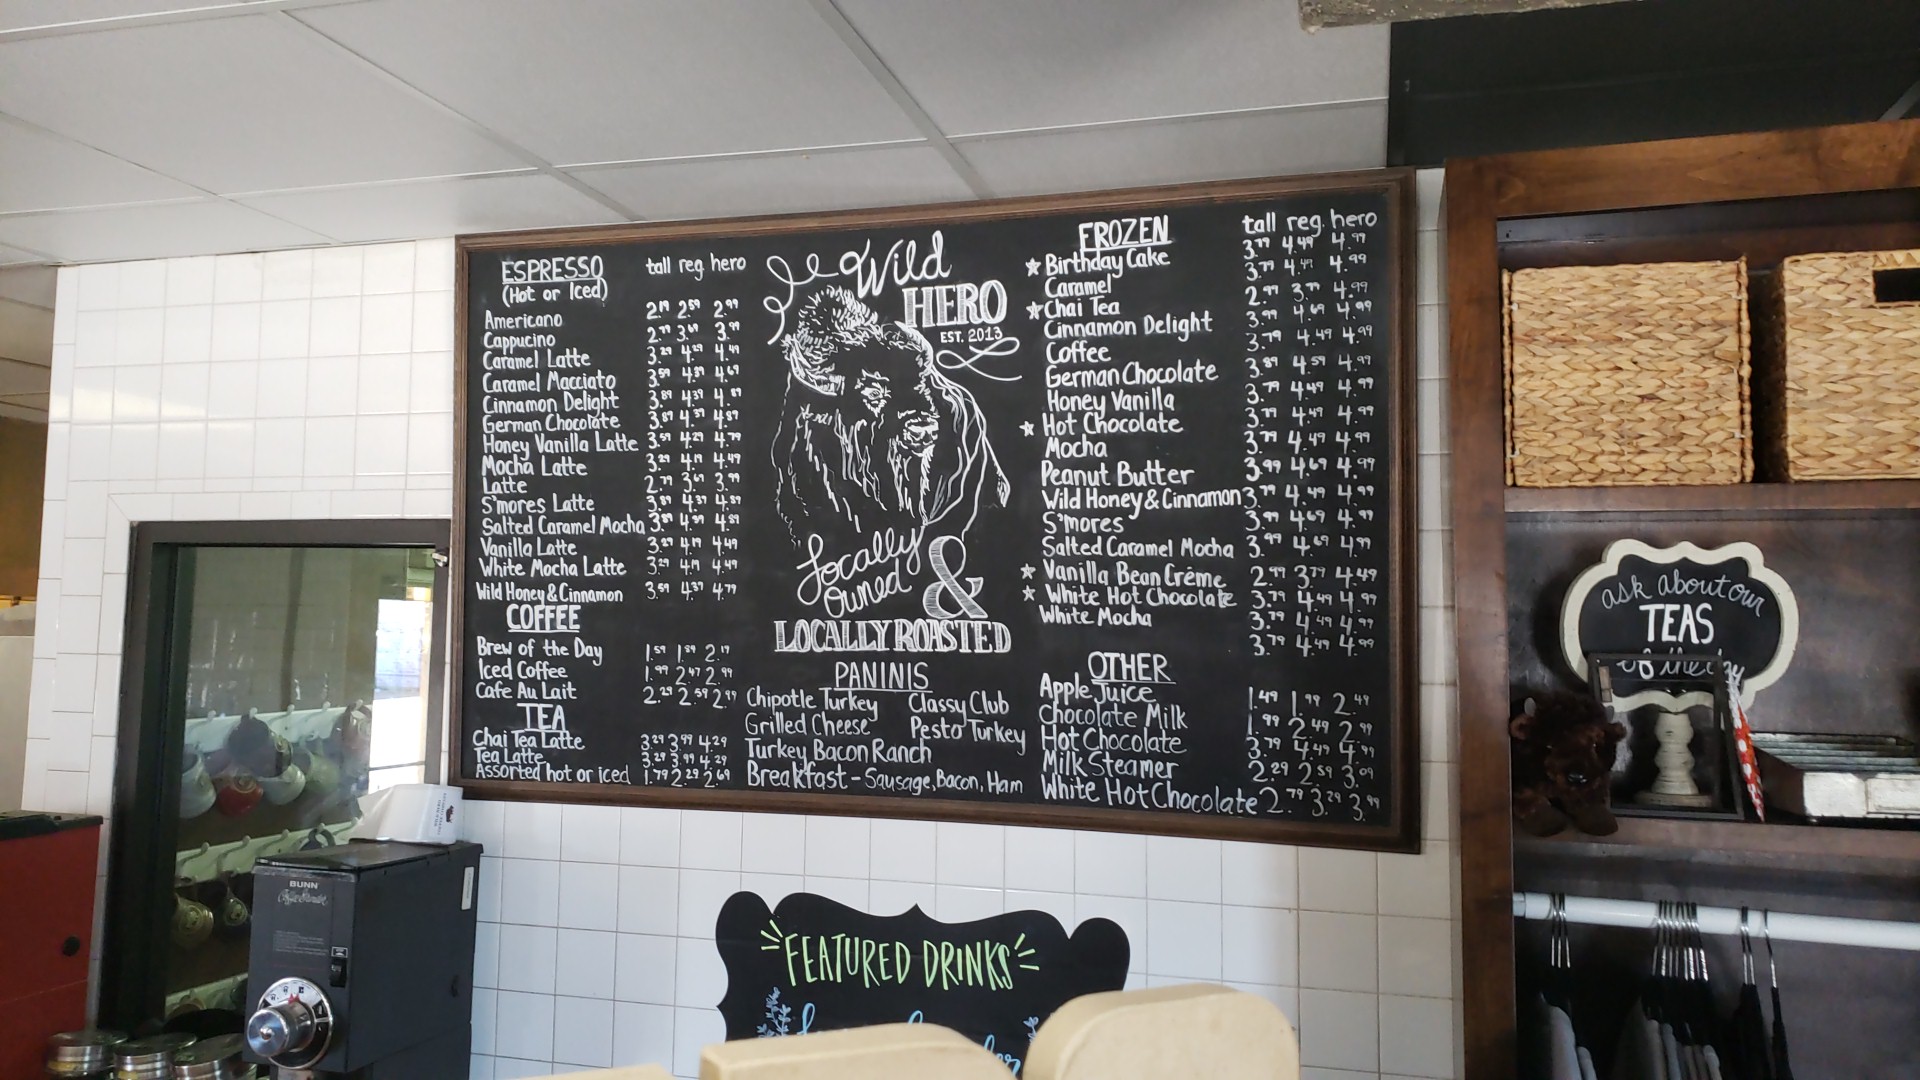 ESPRESSO tall reg. hero
(Hot or Iced)
Americano 2.19 2.59 2.99
Cappucino 2.79 3.69 3.99
Caramel Latte 3.29 4.29 4.49
Caramel Macciato 3.59 4.39 4.69
Cinnamon Delight 3.89 4.39 4.89
German Chocolate 3.89 4.39 4.89
Honey Vanilla Latte 3.59 4.29 4.79
Mocha Latte 3.29 4.19 4.49
Latte 2.79 3.69 3.99
S'mores Latte 3.89 4.39 4.89
Salted Caramel Mocha 3.89 4.39 4.89
Vanilla Latte 3.29 4.19 4.49
White Mocha Latte 3.29 4.19 4.49
Wild Honey & Cinnamon 3.59 4.39 4.79
COFFEE
Brew of the Day 1.59 1.89 2.19
Iced Coffee 1.99 2.47 2.99
Cafe Au Lait 2.29 2.59 2.99
TEA
Chai Tea Latte 3.29 3.99 4.29
Tea Latte 3.29 3.99 4.29
Assorted hot or iced 1.79 2.29 2.69
Wild
HERO
EST. 2013
Locally
Owned &
LOCALLY ROASTED
PANINIS
Chipotle Turkey Classy Club
Grilled Cheese Pesto Turkey
Turkey Bacon Ranch
Breakfast - Sausage, Bacon, Ham
FROZEN tall reg. hero
★ Birthday Cake 3.79 4.49 4.99
Caramel 3.79 4.49 4.99
★ Chai Tea 2.99 3.79 4.99
Cinnamon Delight 3.99 4.69 4.99
Coffee 3.79 4.49 4.99
German Chocolate 3.89 4.59 4.99
Honey Vanilla 3.79 4.49 4.99
★ Hot Chocolate 3.79 4.49 4.99
Mocha 3.79 4.49 4.99
Peanut Butter 3.99 4.69 4.99
Wild Honey & Cinnamon 3.79 4.49 4.99
S'mores 3.99 4.69 4.99
Salted Caramel Mocha 3.99 4.69 4.99
★ Vanilla Bean Crème 2.99 3.79 4.49
★ White Hot Chocolate 3.79 4.49 4.99
White Mocha 3.79 4.49 4.99
3.79 4.49 4.99
OTHER
Apple Juice 1.49 1.99 2.49
Chocolate Milk 1.99 2.49 2.99
Hot Chocolate 3.79 4.49 4.99
Milk Steamer 2.29 2.59 3.09
White Hot Chocolate 2.79 3.29 3.99
ask about our
TEAS
of the day
BUNN
FEATURED DRINKS